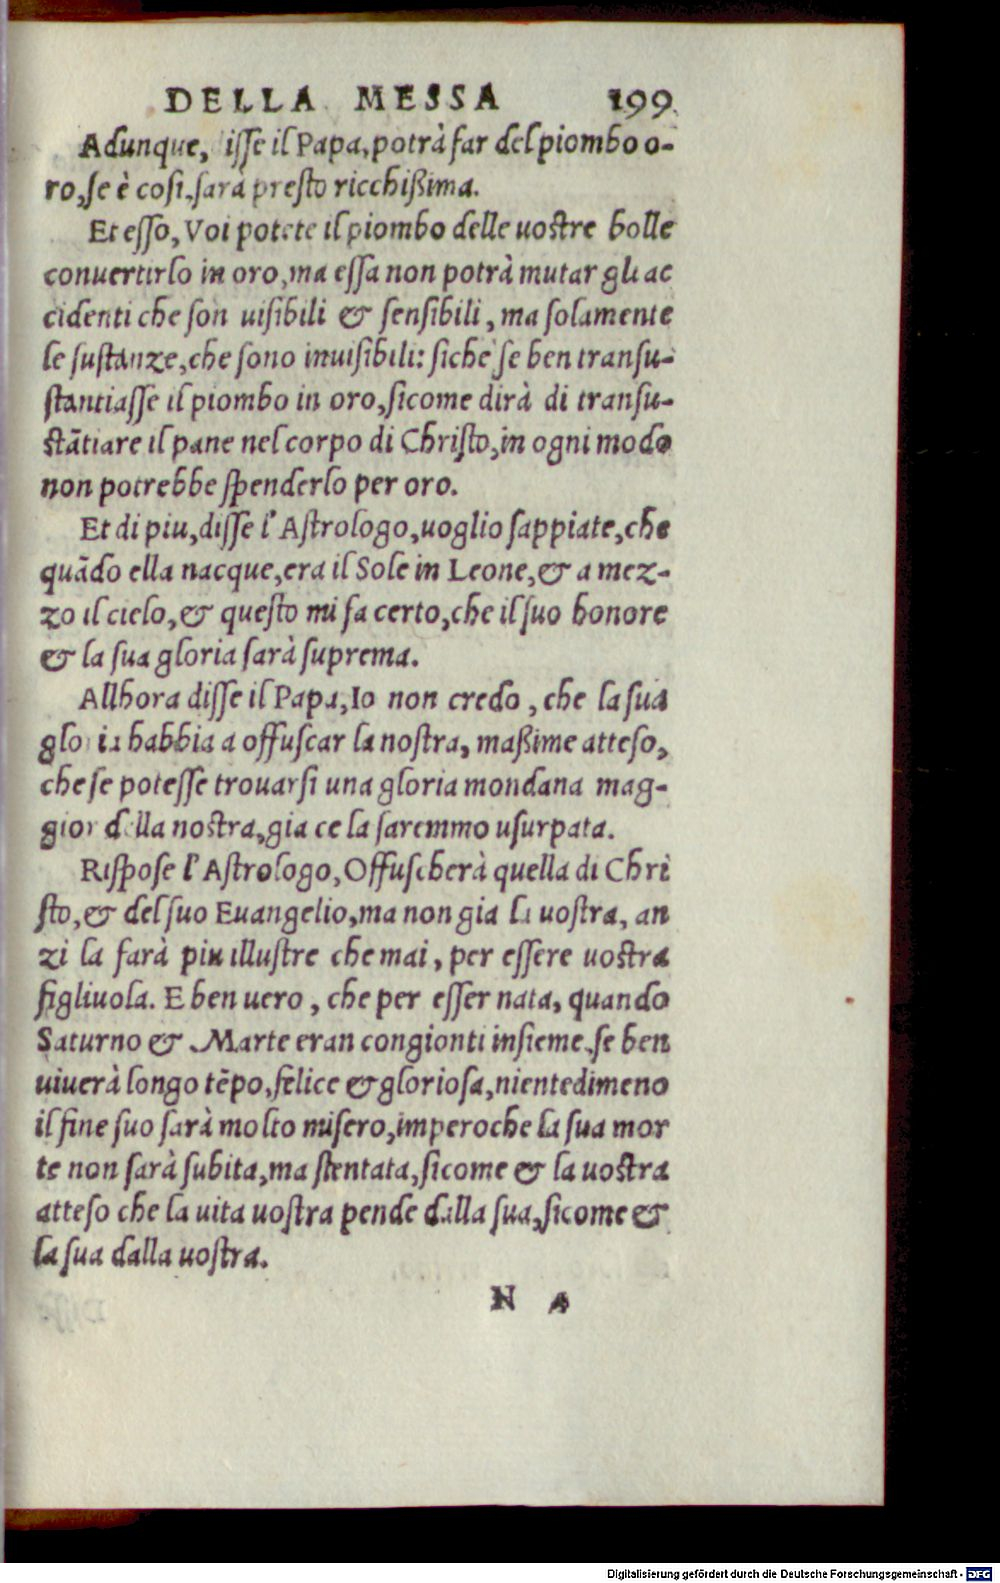 DELLA MESSA 199
Adunque, isse il Papa, potrà far del piombo o-
ro, se è cosi, sarà presto ricchißima.
Et esso, Voi potete il piombo delle uostre bolle
conuertirlo in oro, ma essa non potrà mutar gli ac
cidenti che son uisibili & sensibili, ma solamente
le sustanze, che sono inuisibili: sichè se ben transu-
stantiasse il piombo in oro, sicome dirà di transu-
stãtiare il pane nel corpo di Christo, in ogni modo
non potrebbe spenderlo per oro.
Et di piu, disse l'Astrologo, uoglio sappiate, che
quãdo ella nacque, era il Sole in Leone, & a mez-
zo il cielo, & questo mi fa certo, che il suo honore
& la sua gloria sarà suprema.
Allhora disse il Papa, Io non credo, che la sua
gloria habbia a offuscar la nostra, maßime atteso,
che se potesse trouarsi una gloria mondana mag-
gior della nostra, gia ce la saremmo usurpata.
Rispose l'Astrologo, Offuscherà quella di Chri
sto, & del suo Euangelio, ma non gia la uostra, an
zi la farà piu illustre che mai, per essere uostra
figliuola. E ben uero, che per esser nata, quando
Saturno & Marte eran congionti insieme, se ben
uiuerà longo tẽpo, felice & gloriosa, nientedimeno
il fine suo sarà molto misero, imperoche la sua mor
te non sarà subita, ma stentata, sicome & la uostra
atteso che la uita uostra pende dalla sua, sicome &
la sua dalla uostra.
N 4
Digitalisierung gefördert durch die Deutsche Forschungsgemeinschaft - DFG